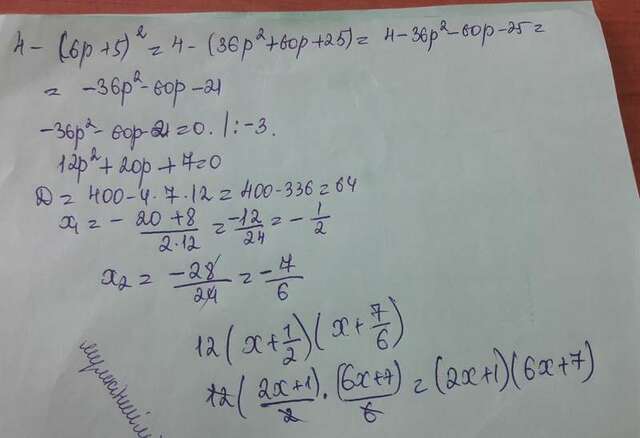 4 - (6p + 5)² = 4 - (36p² + 60p + 25) = 4 - 36p² - 60p - 25 =
= -36p² - 60p - 21
-36p² - 60p - 21 = 0. | : -3.
12p² + 20p + 7 = 0
D = 400 - 4 · 7 · 12 = 400 - 336 = 64
x₁ = - 20 + 8 / 2·12 = -12 / 24 = - 1/2
x₂ = -28 / 24 = -7 / 6
12 (x + 1/2) (x + 7/6)
12 ( 2x+1) / 2 · (6x+7) / 6 = (2x+1) (6x+7)